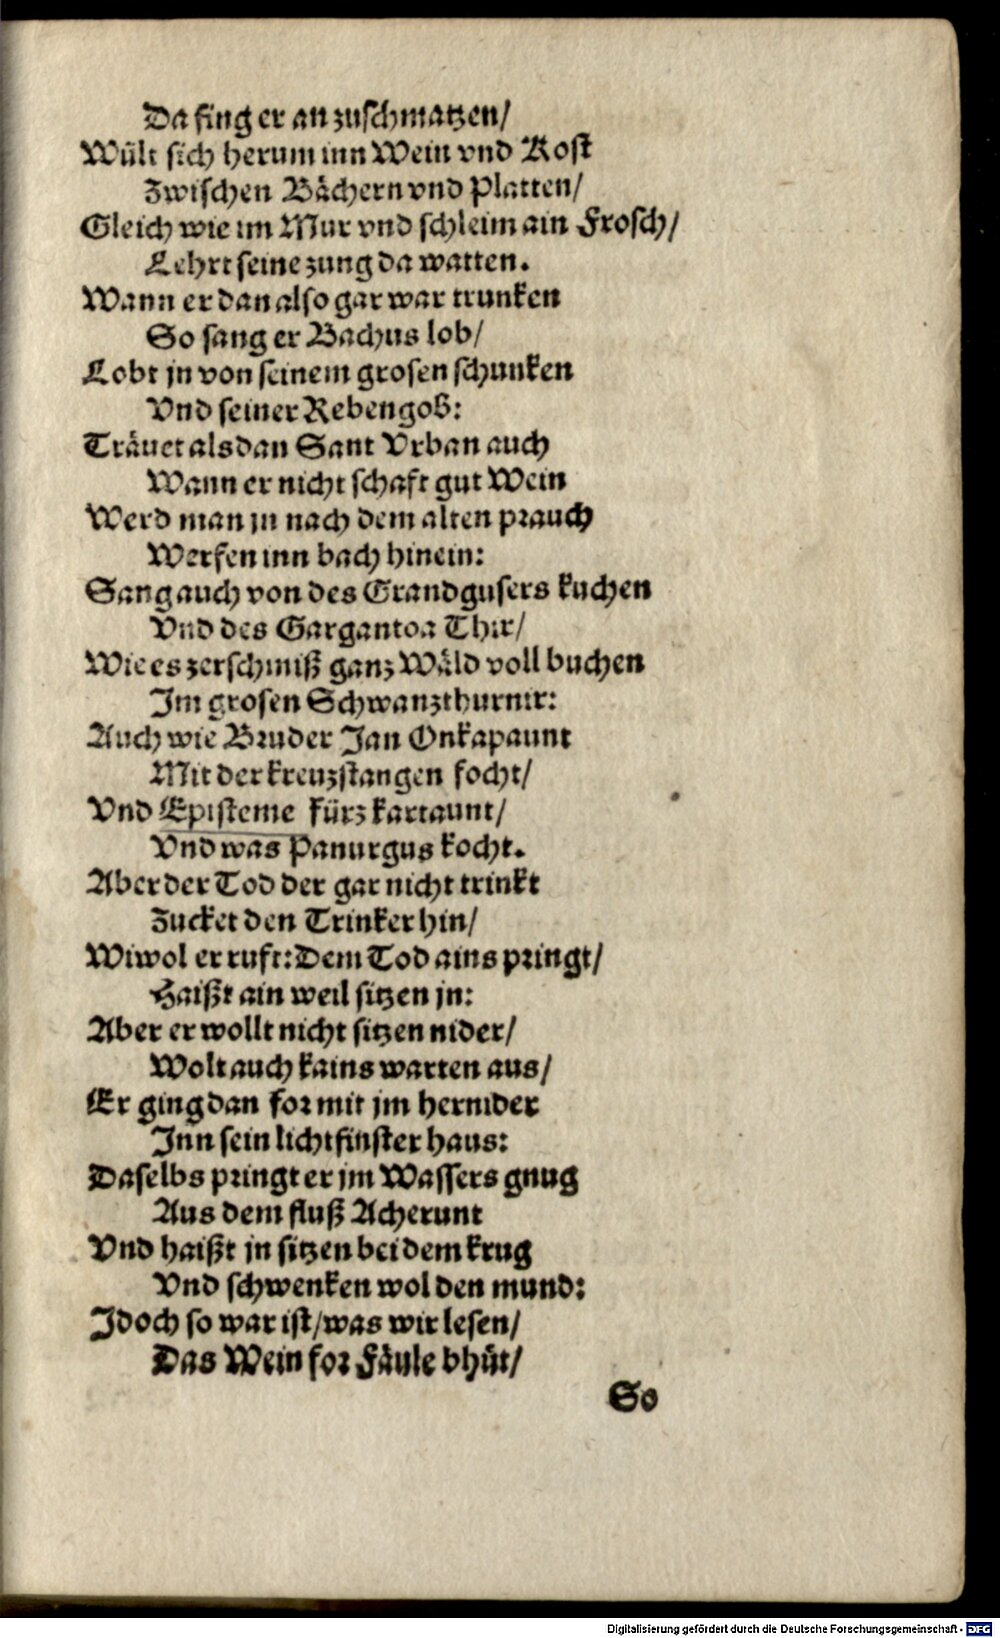 Da fing er an zuschmatzen/
Wült sich herum inn Wein vnd Kost
Zwischen Bächern vnd Platten/
Gleich wie im Mur vnd schleim ain Frosch/
Lehrt seine zung da watten.
Wann er dan also gar war trunken
So sang er Bachus lob/
Lobt jn von seinem grosen schunken
Vnd seiner Rebengoß:
Träuet alsdan Sant Vrban auch
Wann er nicht schaft gut Wein
Werd man jn nach dem alten prauch
Werfen inn bach hinein:
Sang auch von des Grandgusers kuchen
Vnd des Gargantoa Thir/
Wie es zerschmiß ganz Wäld voll buchen
Im grosen Schwanzthurnir:
Auch wie Bruder Jan Onkapaunt
Mit der kreuzstangen focht/
Vnd Episteme fürz kartaunt/
Vnd was Panurgus kocht.
Aber der Tod der gar nicht trinkt
Zucket den Trinker hin/
Wiwol er ruft: Dem Tod ains pringt/
Haißt ain weil sitzen jn:
Aber er wollt nicht sitzen nider/
Wolt auch kains warten aus/
Er ging dan for mit jm hernider
Inn sein lichtfinster haus:
Daselbs pringt er jm Wassers gnug
Aus dem fluß Acherunt
Vnd haißt jn sitzen bei dem krug
Vnd schwenken wol den mund:
Jdoch so war ist/ was wir lesen/
Das Wein for Fäule bhüt/
So
Digitalisierung gefördert durch die Deutsche Forschungsgemeinschaft - DFG